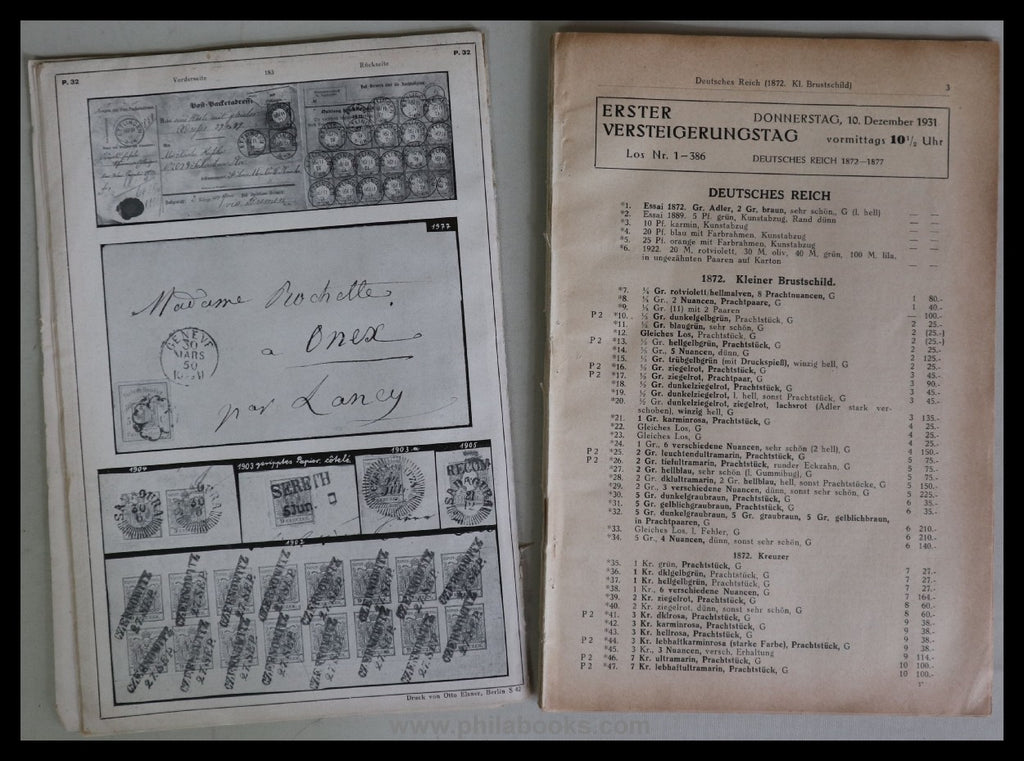 P. 32
P. 32
Vorderseite 183 Rückseite
Post-Packetadresse
1977
Madame Rochette.
a Onex
par Lancy
GENEVE
30
MARS
50
1904
1903 geripptes Papier, côtelé
1903 a
1905
SERETH
5 Jun.
RECOM
1902
CZERNOWITZ
27. SEP.
Druck von Otto Elsner, Berlin S 42
Deutsches Reich (1872. Kl. Brustschild) 3
ERSTER VERSTEIGERUNGSTAG
DONNERSTAG, 10. Dezember 1931
vormittags 10½ Uhr
Los Nr. 1–386 DEUTSCHES REICH 1872–1877
DEUTSCHES REICH
*1. Essai 1872. Gr. Adler, 2 Gr. braun, sehr schön., G (l. hell) — —
*2. Essai 1889. 5 Pf. grün, Kunstabzug, Rand dünn — —
*3. 10 Pf. karmin, Kunstabzug — —
*4. 20 Pf. blau mit Farbrahmen, Kunstabzug — —
*5. 25 Pf. orange mit Farbrahmen, Kunstabzug — —
*6. 1922. 20 M. rotviolett, 30 M. oliv, 40 M. grün, 100 M. lila,
in ungezähnten Paaren auf Karton — —
1872. Kleiner Brustschild.
*7. ¼ Gr. rotviolett/hellmalven, 8 Prachtnuancen, G 1 80.-
*8. ¼ Gr., 2 Nuancen, Prachtpaare, G 1 40.-
*9. ¼ Gr. (11) mit 2 Paaren — 100.-
P 2 *10. ⅓ Gr. dunkelgelbgrün, Prachtstück, G 2 25.-
*11. ⅓ Gr. blaugrün, sehr schön, G 2 (25.-)
*12. Gleiches Los, Prachtstück, G 2 (25.-)
P 2 *13. ⅓ Gr. hellgelbgrün, Prachtstück, G 2 25.-
*14. ⅓ Gr., 5 Nuancen, dünn, G 2 125.-
*15. ⅓ Gr. trübgelbgrün (mit Druckspieß), winzig hell, G 2 25.-
P 2 *16. ½ Gr. ziegelrot, Prachtstück, G 3 45.-
P 2 *17. ½ Gr. ziegelrot, Prachtpaar, G 3 90.-
*18. ½ Gr. dunkelziegelrot, Prachtstück, G 3 45.-
*19. ½ Gr. dunkelziegelrot, l. hell, sonst Prachtstück, G 3 45.-
*20. ½ Gr. dunkelziegelrot, ziegelrot, lachsrot (Adler stark ver-
schoben), winzig hell, G 3 135.-
*21. 1 Gr. karminrosa, Prachtstück, G 4 25.-
*22. Gleiches Los, G 4 25.-
*23. Gleiches Los, G 4 25.-
*24. 1 Gr., 6 verschiedene Nuancen, sehr schön (2 hell), G 4 150.-
P 2 *25. 2 Gr. leuchtendultramarin, Prachtstück, G 5 75.-
P 2 *26. 2 Gr. tiefultramarin, Prachtstück, runder Eckzahn, G 5 75.-
*27. 2 Gr. hellblau, sehr schön (l. Gummibug), G 5 75.-
*28. 2 Gr. dklultramarin, 2 Gr. hellblau, hell, sonst Prachtstücke, G 5 150.-
*29. 2 Gr., 3 verschiedene Nuancen, dünn, sonst sehr schön, G 5 225.-
*30. 5 Gr. dunkelgraubraun, Prachtstück, G 6 35.-
*31. 5 Gr. gelblichgraubraun, Prachtstück, G 6 35.-
*32. 5 Gr. dunkelgraubraun, 5 Gr. graubraun, 5 Gr. gelblichbraun,
in Prachtpaaren, G 6 210.-
*33. Gleiches Los, l. Fehler, G 6 210.-
*34. 5 Gr., 4 Nuancen, dünn, sonst sehr schön, G 6 140.-
1872. Kreuzer
*35. 1 Kr. grün, Prachtstück, G 7 27.-
*36. 1 Kr. dklgelbgrün, Prachtstück, G 7 27.-
*37. 1 Kr. hellgelbgrün, Prachtstück, G 7 27.-
*38. 1 Kr., 6 verschiedene Nuancen, G 7 164.-
*39. 2 Kr. ziegelrot, Prachtstück, G 8 60.-
*40. 2 Kr. ziegelrot, dünn, sonst sehr schön, G 8 60.-
P 2 *41. 3 Kr. dklrosa, Prachtstück, G 9 38.-
*42. 3 Kr. karminrosa, Prachtstück, G 9 38.-
*43. 3 Kr. hellrosa, Prachtstück, G 9 38.-
P 2 *44. 3 Kr. lebhaftkarminrosa (starke Farbe), Prachtstück, G 9 38.-
*45. 3 Kr., 3 Nuancen, versch. Erhaltung 9 114.-
P 2 *46. 7 Kr. ultramarin, Prachtstück, G 10 100.-
P 2 *47. 7 Kr. lebhaftultramarin, Prachtstück, G 10 100.-
www.philabooks.com